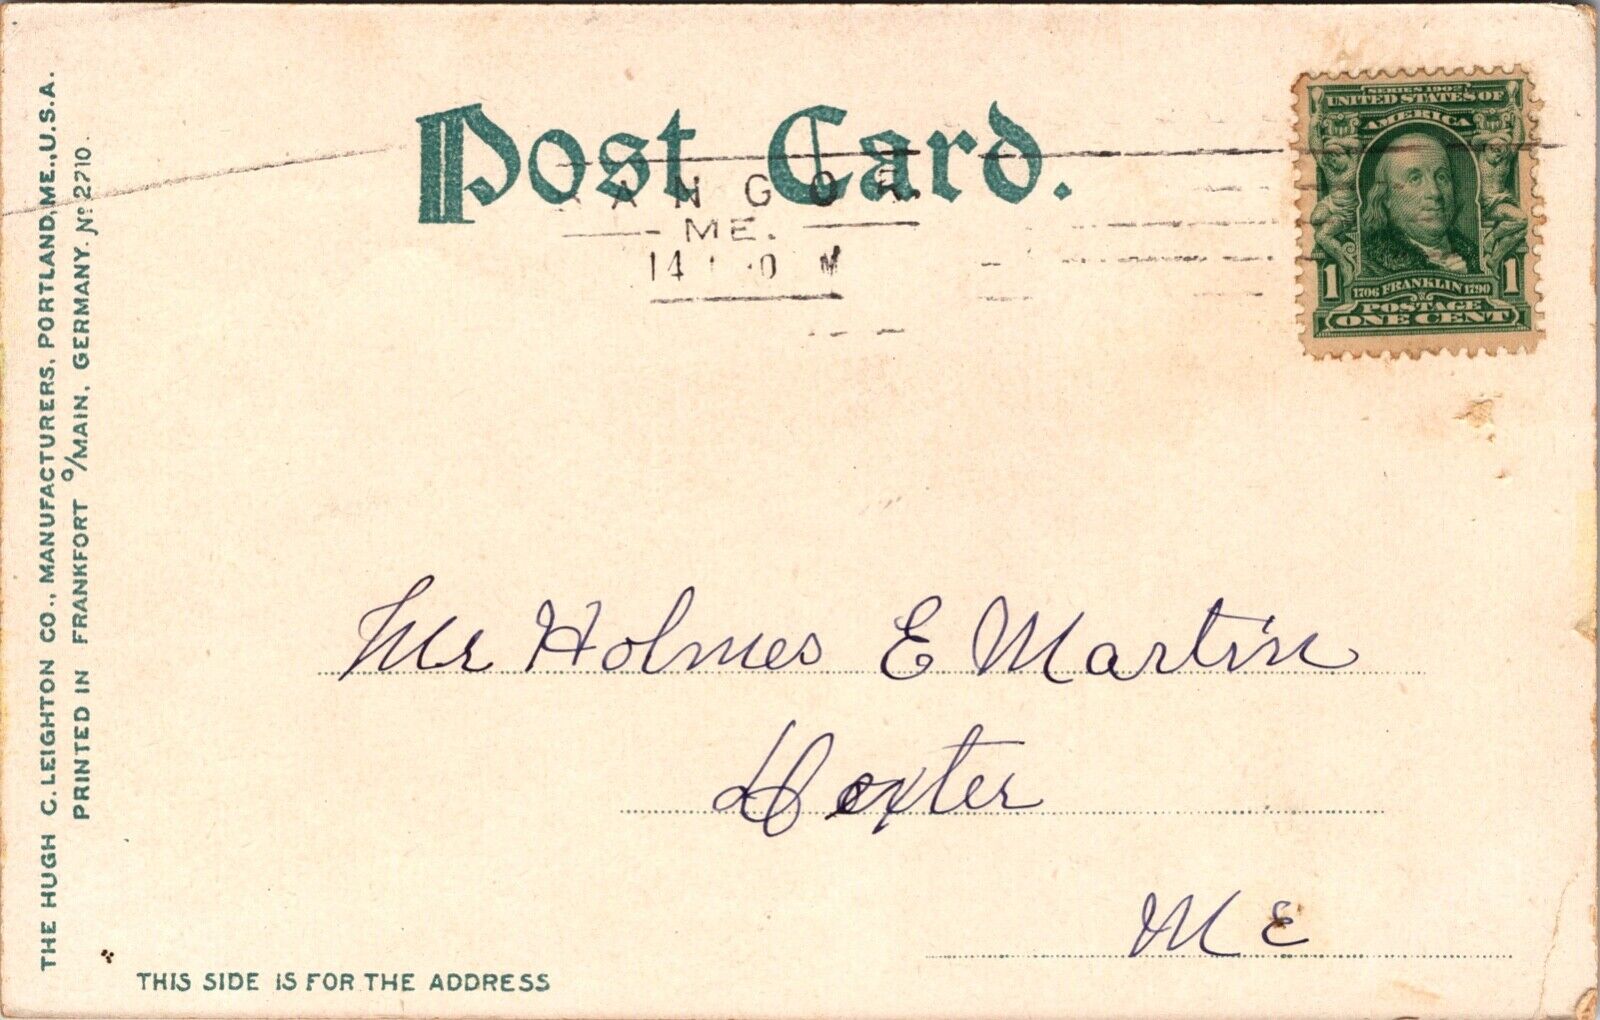 THE HUGH C. LEIGHTON CO., MANUFACTURERS, PORTLAND, ME., U.S.A.
PRINTED IN FRANKFORT o/MAIN, GERMANY. No 2710.
Post Card.
ANGOR.
ME.
14
SERIES 1902
UNITED STATES OF
AMERICA
1 1706 FRANKLIN 1790 1
POSTAGE
ONE CENT
Mr Holmes E Martin
Dexter
Me
THIS SIDE IS FOR THE ADDRESS